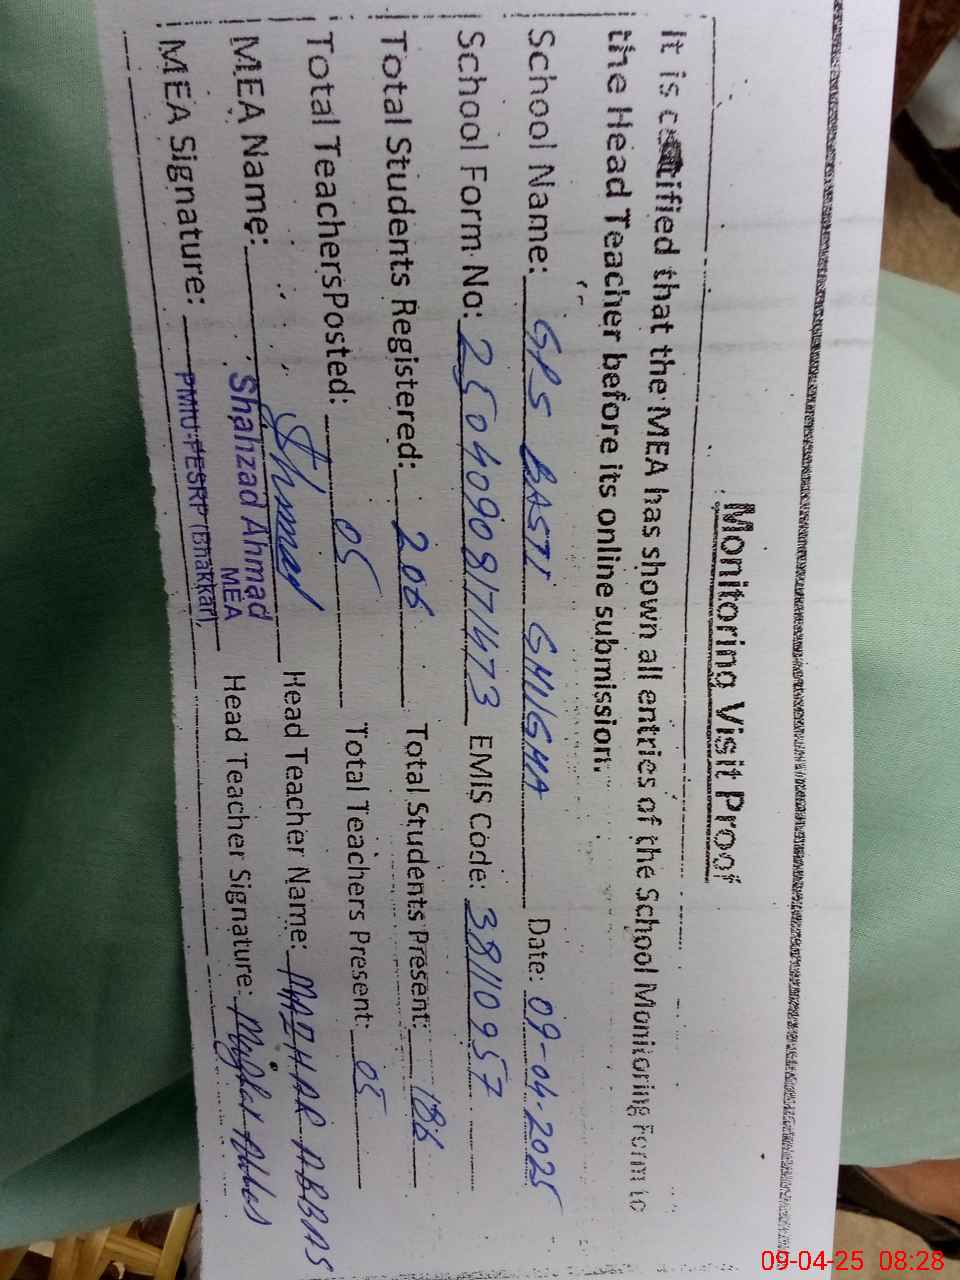 Monitoring Visit Proof
It is certified that the MEA has shown all entries of the School Monitoring Form to
the Head Teacher before its online submission.
School Name: GPS BASTI GHUGHA Date: 09-04-2025
School Form No: 25040908171473 EMIS Code: 38110957
Total Students Registered: 206 Total Students Present: 186
Total Teachers Posted: 05 Total Teachers Present: 05
MEA Name: Head Teacher Name: MAZHAR ABBAS
Shahzad Ahmad
MEA
MEA Signature: PMIU-PESRP (Bhakkar) Head Teacher Signature:
09-04-25 08:28